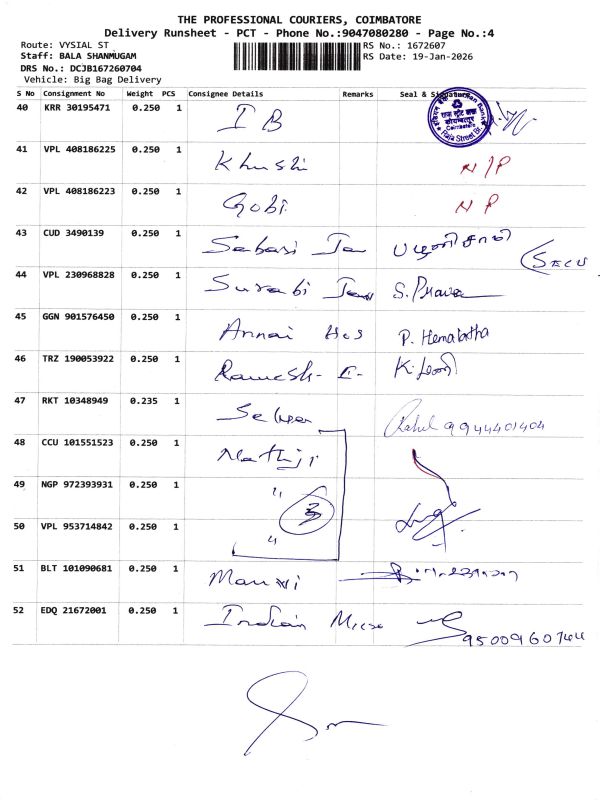 THE PROFESSIONAL COURIERS, COIMBATORE
Delivery Runsheet - PCT - Phone No.:9047080280 - Page No.:4
Route: VYSIAL ST
RS No.: 1672607
Staff: BALA SHANMUGAM
RS Date: 19-Jan-2026
DRS No.: DCJB167260704
Vehicle: Big Bag Delivery
S No Consignment No Weight PCS Consignee Details Remarks Seal &
40 KRR 30195471 0.250 1 I B
41 VPL 408186225 0.250 1 Khushi N/P
42 VPL 408186223 0.250 1 Gobi NP
43 CUD 3490139 0.250 1 Sabari பழனிசாமி
44 VPL 230968828 0.250 1 Surabi
45 GGN 901576450 0.250 1 Annai Hos P. Hemalatha
46 TRZ 190053922 0.250 1 Ramesh
47 RKT 10348949 0.235 1 Rahul 9944401404
48 CCU 101551523 0.250 1 Nathiji
49 NGP 972393931 0.250 1 " 3
50 VPL 953714842 0.250 1 "
51 BLT 101090681 0.250 1
52 EDQ 21672001 0.250 1 Indian Micro 9500960744